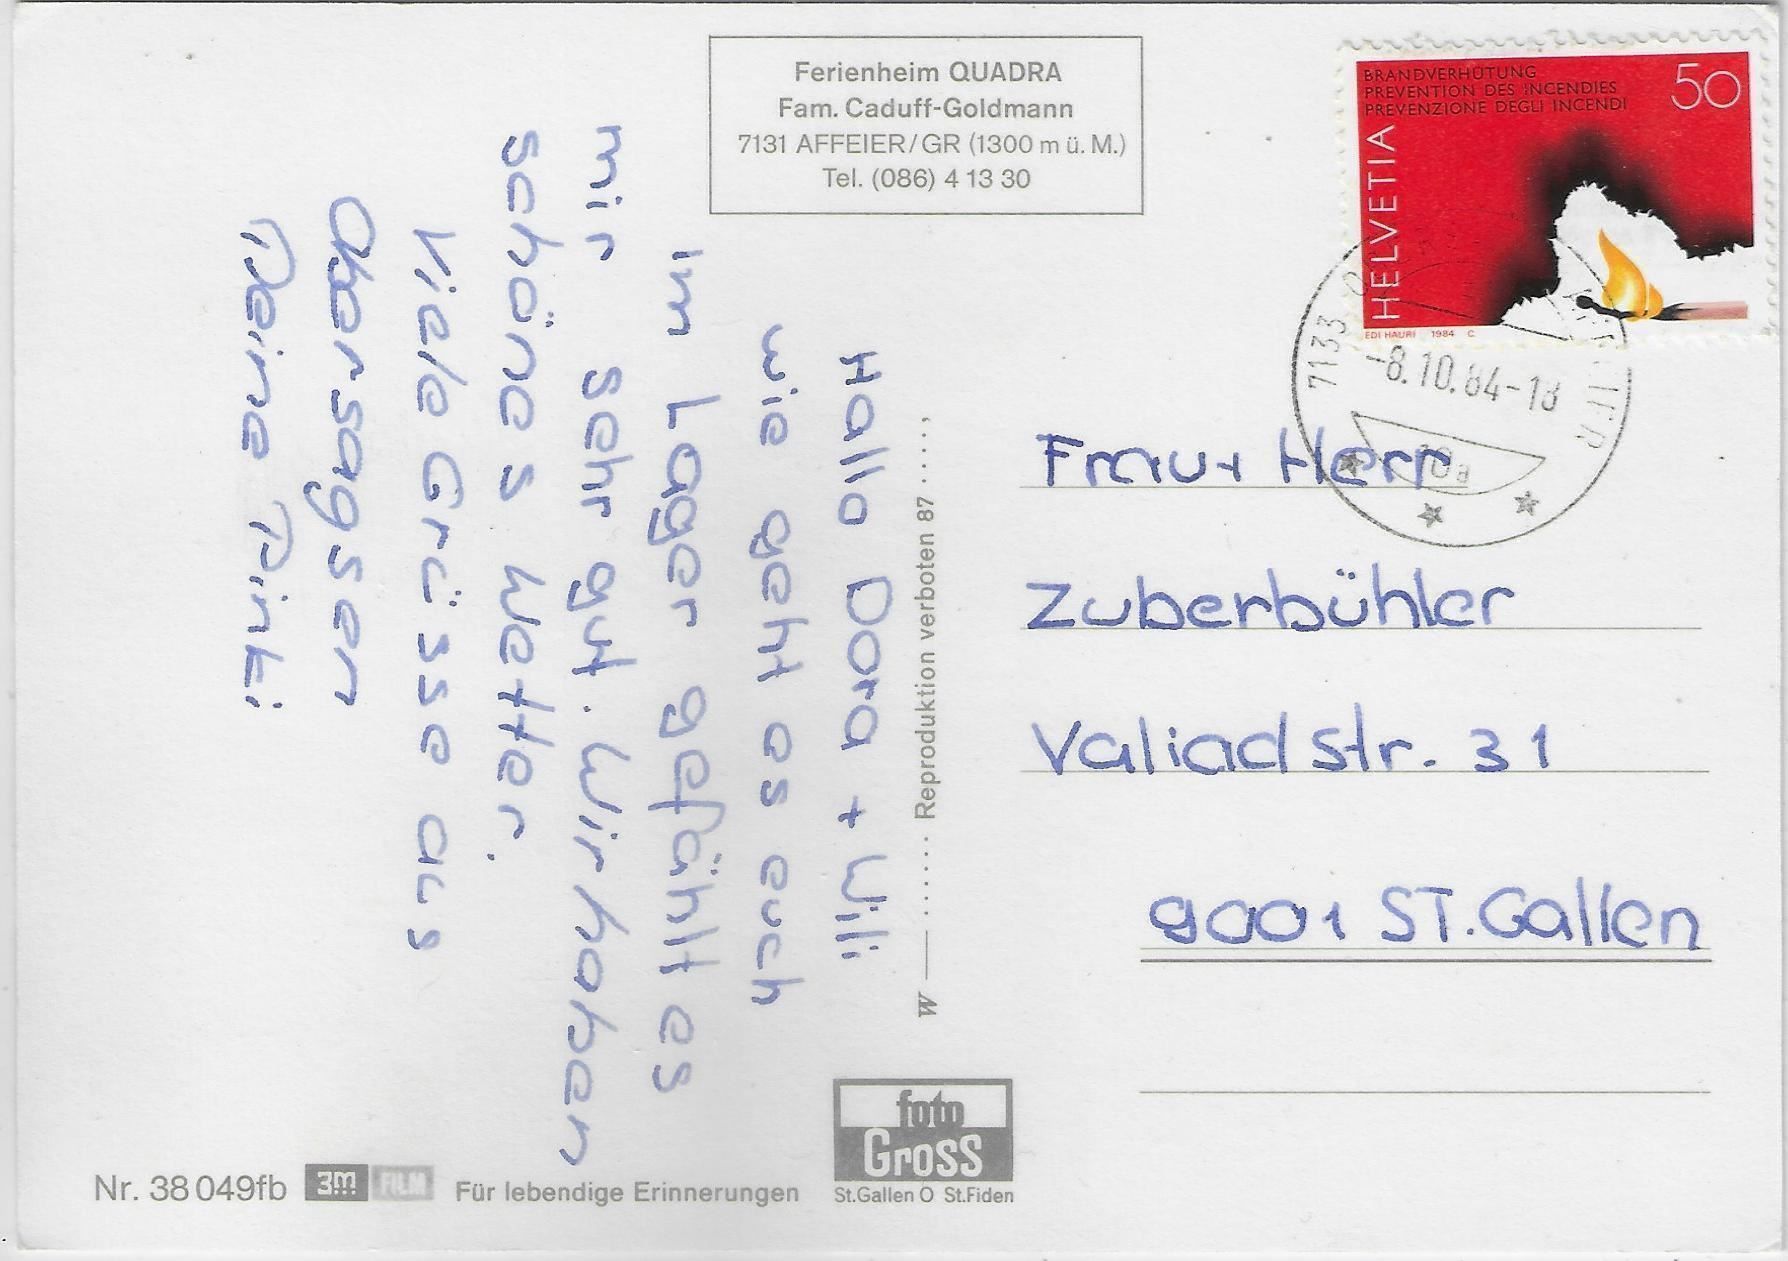 Ferienheim QUADRA
Fam. Caduff-Goldmann
7131 AFFEIER/GR (1300 m ü. M.)
Tel. (086) 4 13 30
BRANDVERHÜTUNG
PREVENTION DES INCENDIES
PREVENZIONE DEGLI INCENDI
50
HELVETIA
EDI HAURI 1984 C
7133
-8.10.84-18
Hallo Dora + Willi
wie geht es euch
im Lager gefählt es
mir sehr gut. Wir haben
schönes Wetter.
Viele Grüsse aus
Obersagsen
Deine Pinki
W Reproduktion verboten 87
Frau + Herr
Zuberbühler
Valiadstr. 31
9001 ST. Gallen
Nr. 38 049fb
3M FILM
Für lebendige Erinnerungen
foto
Gross
St.Gallen O St.Fiden